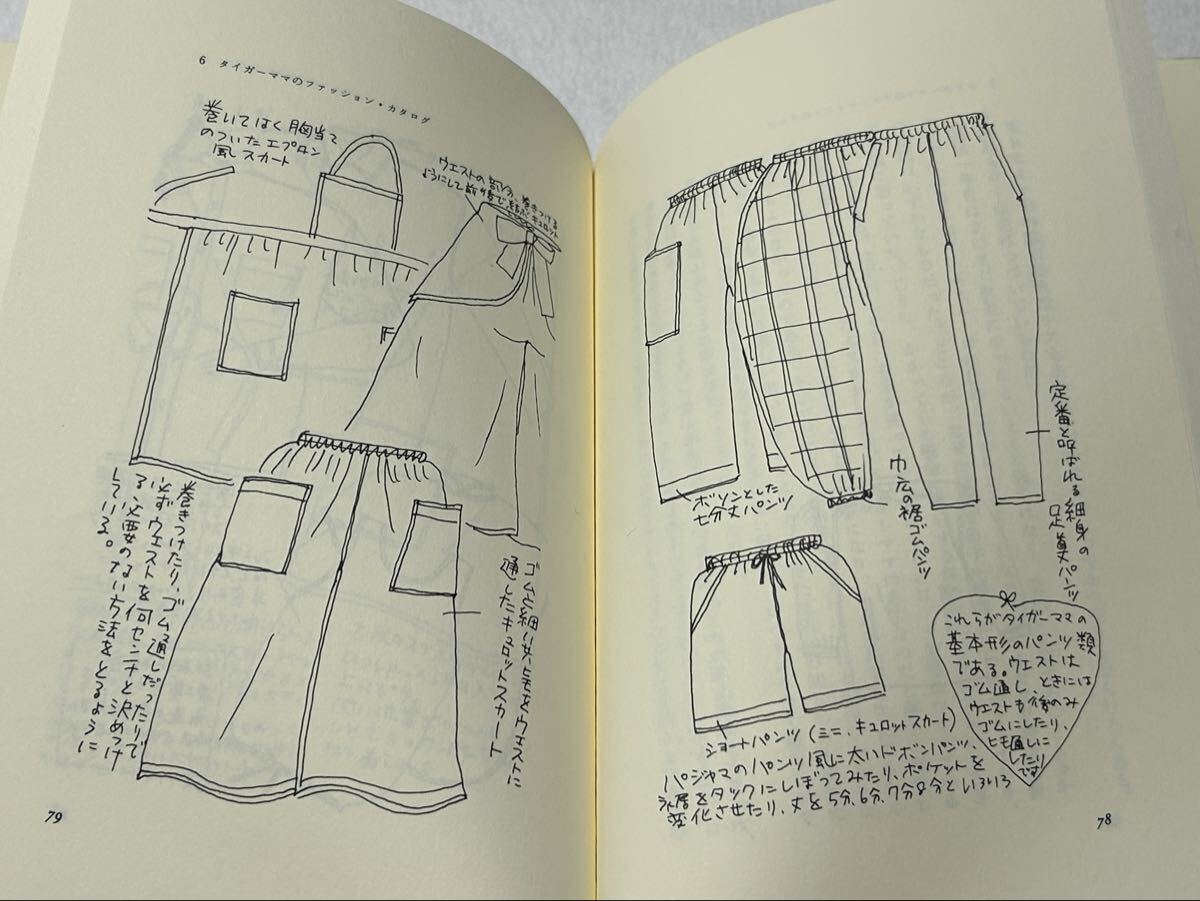 定番と呼ばれる細身の
足首丈パンツ
巾広の裾ゴムパンツ
ボソンとした
七分丈パンツ
ショートパンツ（ミニ、キュロットスカート）
パジャマのパンツ風に太いドボンパンツ、
裾をタックにしぼってみたり、ポケットを
変化させたり、丈を5分、6分、7分8分といろいろ
これらがタイガーママの
基本形のパンツ類
である。ウエストは
ゴム通し、ときには
ウエストも後のみ
ゴムにしたり、
ヒモ通しに
したり
です
78
6 タイガーママのファッション・カタログ
巻いてはく胸当て
のついたエプロン
風スカート
ウエストの部分、巻きつける
ようにして前後で結ぶキュロット
F
ゴムと細いヒモをウエストに
通したキュロットスカート
巻きつけたり、ゴム通しだったりで
必ずウエストを何センチと決めつけ
る必要のない方法をとるように
している。
79